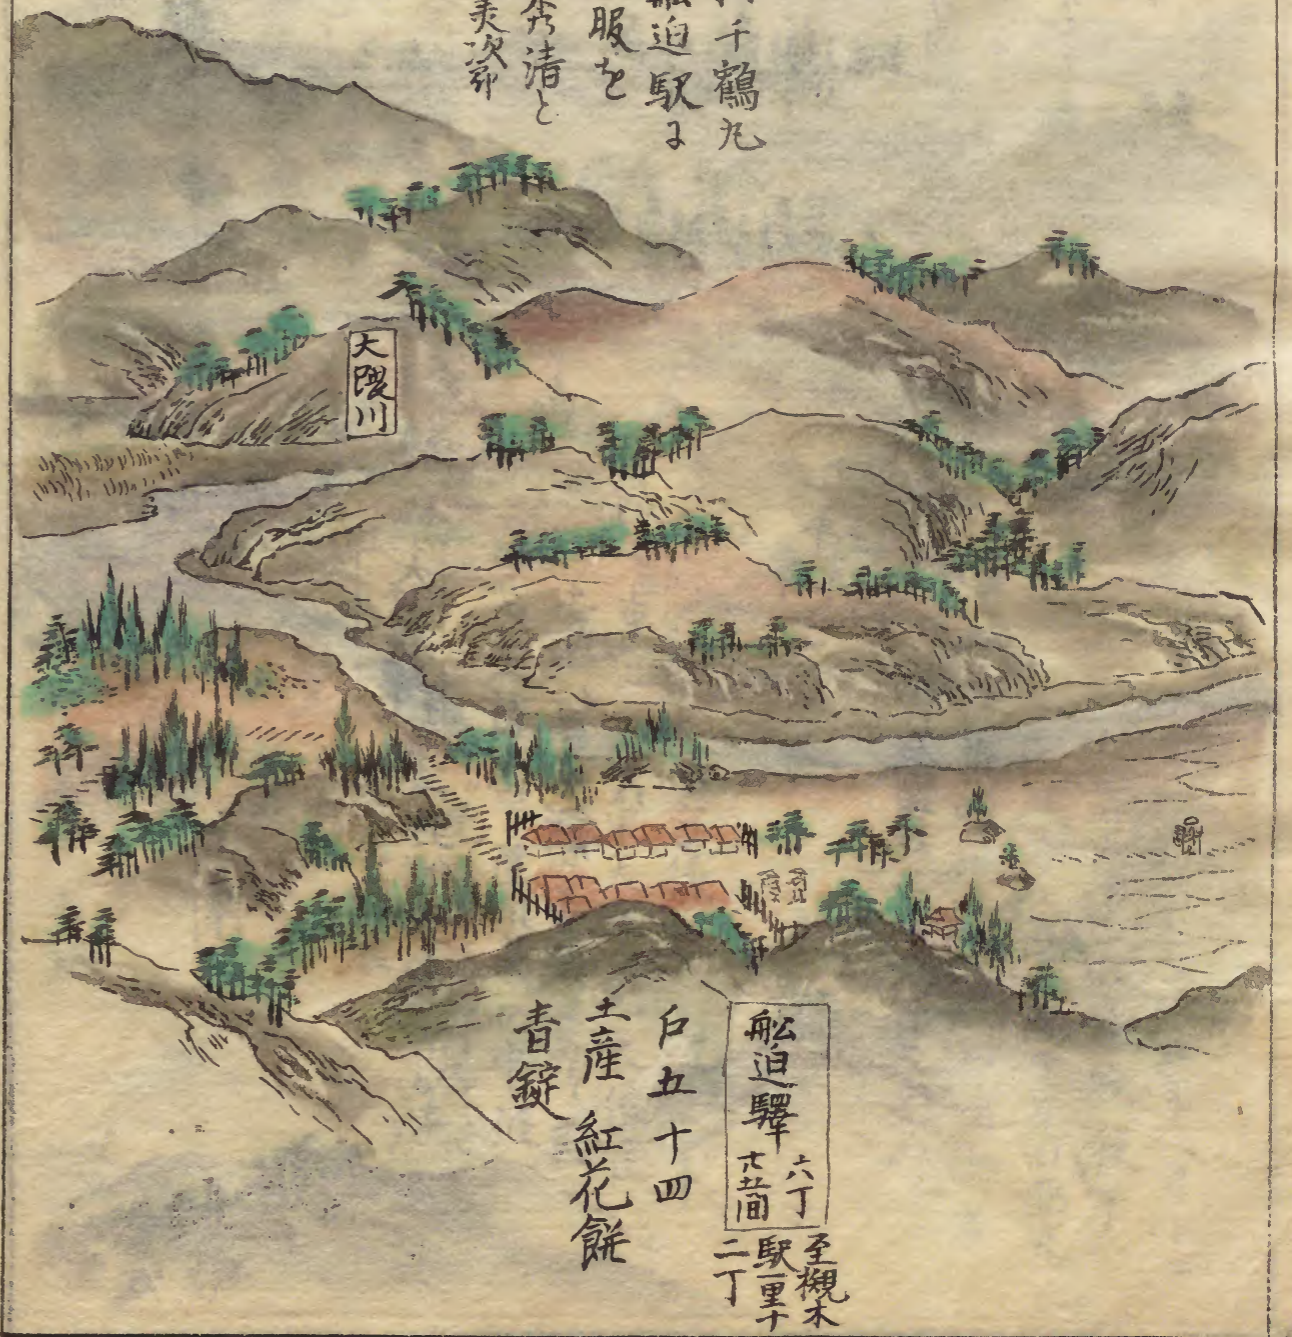 千鶴丸
船迫駅に
服を
秀清と
美次郎
大隈川
船迫驛
六丁
廿五間
至槻木
駅一里十
二丁
戸五十四
土産 紅花餅
青錠